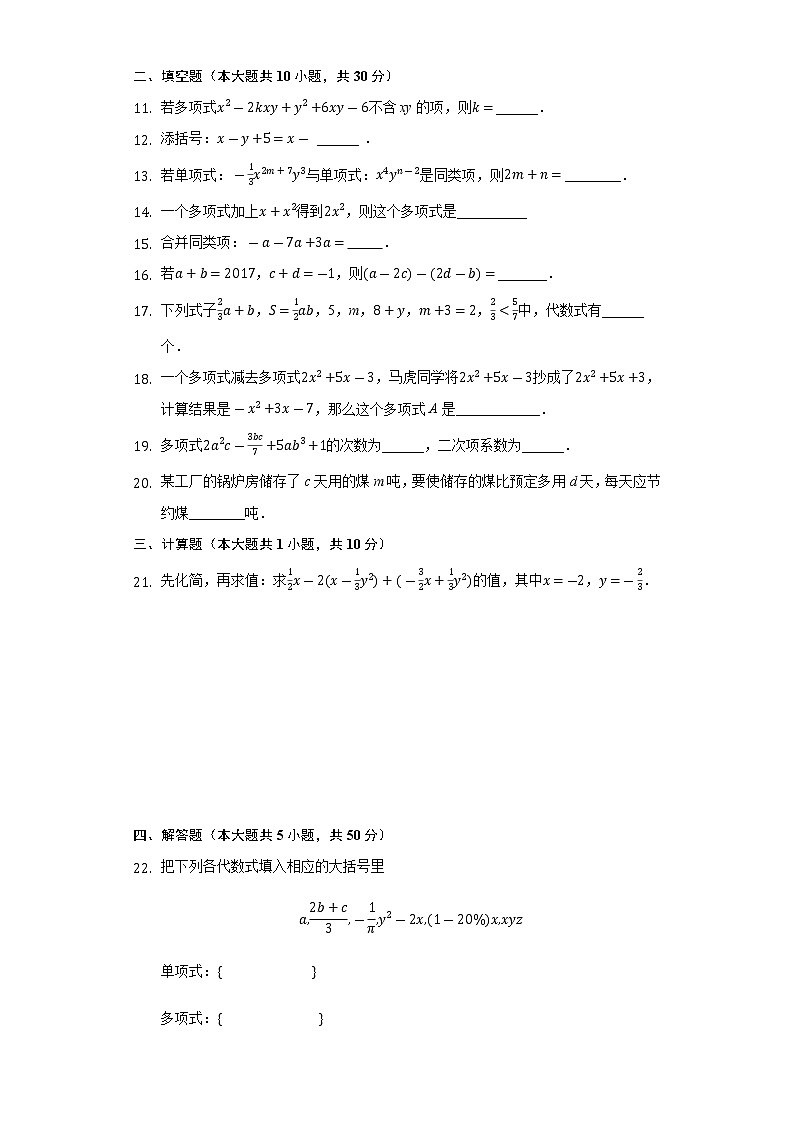 二、填空题（本大题共10小题，共30分）
11. 若多项式x² − 2kxy + y² + 6xy − 6不含xy的项，则k = ______.
12. 添括号：x − y + 5 = x − ______ .
13. 若单项式：−1/3x²ᵐ⁺⁷y³与单项式：x⁴yⁿ⁻²是同类项，则2m + n = ________.
14. 一个多项式加上x + x²得到2x²，则这个多项式是__________
15. 合并同类项：−a − 7a + 3a = _____.
16. 若a + b = 2017，c + d = −1，则(a − 2c) − (2d − b) = _______.
17. 下列式子2/3a + b，S = 1/2ab，5，m，8 + y，m + 3 = 2，2/3 < 5/7中，代数式有______
个.
18. 一个多项式减去多项式2x² + 5x − 3，马虎同学将2x² + 5x − 3抄成了2x² + 5x + 3，
计算结果是−x² + 3x − 7，那么这个多项式A是____________.
19. 多项式2a²c − 3bc/7 + 5ab³ + 1的次数为______，二次项系数为______.
20. 某工厂的锅炉房储存了c天用的煤m吨，要使储存的煤比预定多用d天，每天应节
约煤________吨.
三、计算题（本大题共1小题，共10分）
21. 先化简，再求值：求1/2x − 2(x − 1/3y²) + (−3/2x + 1/3y²)的值，其中x = −2，y = −2/3.
四、解答题（本大题共5小题，共50分）
22. 把下列各代数式填入相应的大括号里
a,(2b + c)/3,−1/π,y² − 2x,(1 − 20%)x,xyz
单项式：{ }
多项式：{ }